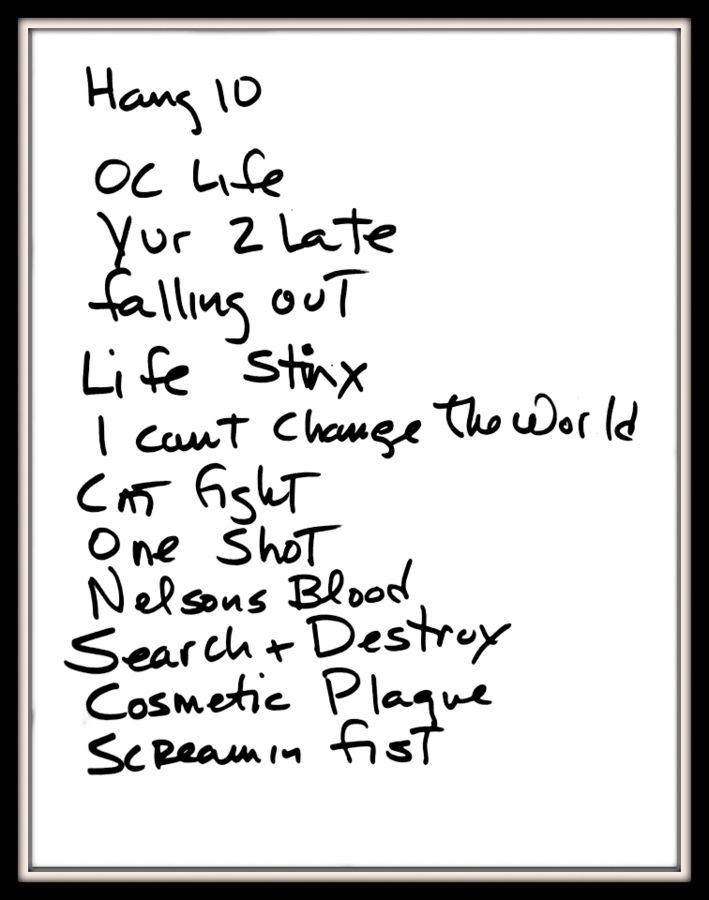 Hang 10
OC Life
Yur 2 Late
falling ouT
Life Stinx
I canT change the World
CAT fighT
One ShoT
Nelsons Blood
Search + Destroy
Cosmetic Plague
Screamin fisT